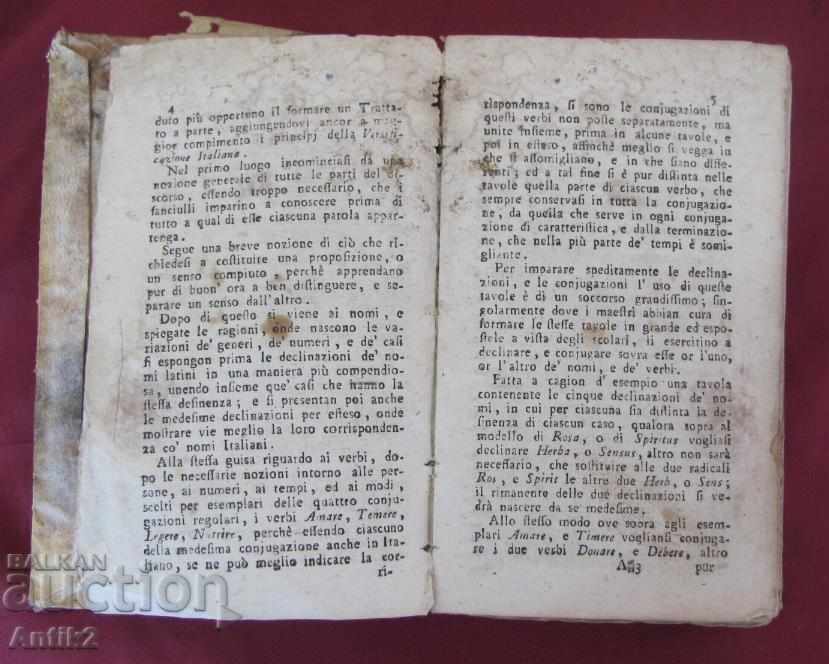 4
duto più opportuno il formare un Tratta-
to a parte, aggiungendovi ancor a mag-
gior compimento i principj della Versifi-
cazione Italiana.
Nel primo luogo incominciasi da una
nozione generale di tutte le parti del di-
scorso, eſſendo troppo neceſſario, che i
fanciulli imparino a conoscere prima di
tutto a qual di eſſe ciascuna parola appar-
tenga.
Segue una breve nozione di ciò che ri-
chiedesi a coſtituire una propoſizione, o
un senso compiuto, perchè apprendano
pur di buon' ora a ben diſtinguere, e se-
parare un senso dall'altro.
Dopo di queſto si viene ai nomi, e
spiegate le ragioni, onde nascono le va-
riazioni de' generi, de' numeri, e de' casi
ſi espongon prima le declinazioni de' no-
mi latini in una maniera più compendio-
sa, unendo inſieme que' caſi che hanno la
ſteſſa deſinenza; e ſi presentan poi anche
le medesime declinazioni per eſteso, onde
moſtrare vie meglio la loro corrisponden-
za co' nomi Italiani.
Alla ſteſſa guisa riguardo ai verbi, do-
po le neceſſarie nozioni intorno alle per-
sone, ai numeri, ai tempi, ed ai modi,
scelti per esemplari delle quattro conju-
gazioni regolari, i verbi Amare, Temere,
Legere, Nutrire, perchè eſſendo ciascuno
della medesima conjugazione anche in Ita-
liano, se ne può meglio indicare la cor-
ri-
5
rispondenza, ſi sono le conjugazioni di
queſti verbi non poſte separatamente, ma
unite inſieme, prima in alcune tavole, e
poi in eſteso, affinchè meglio ſi vegga in
che ſi aſſomigliano, e in che ſiano diffe-
renti; ed a tal fine ſi è pur diſtinta nelle
tavole quella parte di ciascun verbo, che
sempre conservasi in tutta la conjugazio-
ne, da quella che serve in ogni conjuga-
zione di caratteriſtica, e dalla terminazio-
ne, che nella più parte de' tempi è somi-
gliante.
Per imparare speditamente le declina-
zioni, e le conjugazioni l' uso di queſte
tavole è di un soccorso grandiſſimo; ſin-
golarmente dove i maeſtri abbian cura di
formare le ſteſſe tavole in grande ed espo-
ſtele a viſta degli scolari, li esercitino a
declinare, e conjugare sovra eſſe or l'uno,
or l'altro de' nomi, e de' verbi.
Fatta a cagion d' esempio una tavola
contenente le cinque declinazioni de' no-
mi, in cui per ciascuna ſia diſtinta la de-
ſinenza di ciascun caso, qualora sopra al
modello di Rosa, o di Spiritus vogliasi
declinare Herba, o Sensus, altro non sarà
neceſſario, che soſtituire alle due radicali
Ros, e Spirit le altre due Herb, o Sens;
il rimanente delle due declinazioni ſi ve-
drà nascere da se medesime.
Allo ſteſſo modo ove sopra agli esem-
plari Amare, e Timere vogliansi conjuga-
re i due verbi Donare, e Debere, altro
A3 pur
BALKAN
auction
Antik2